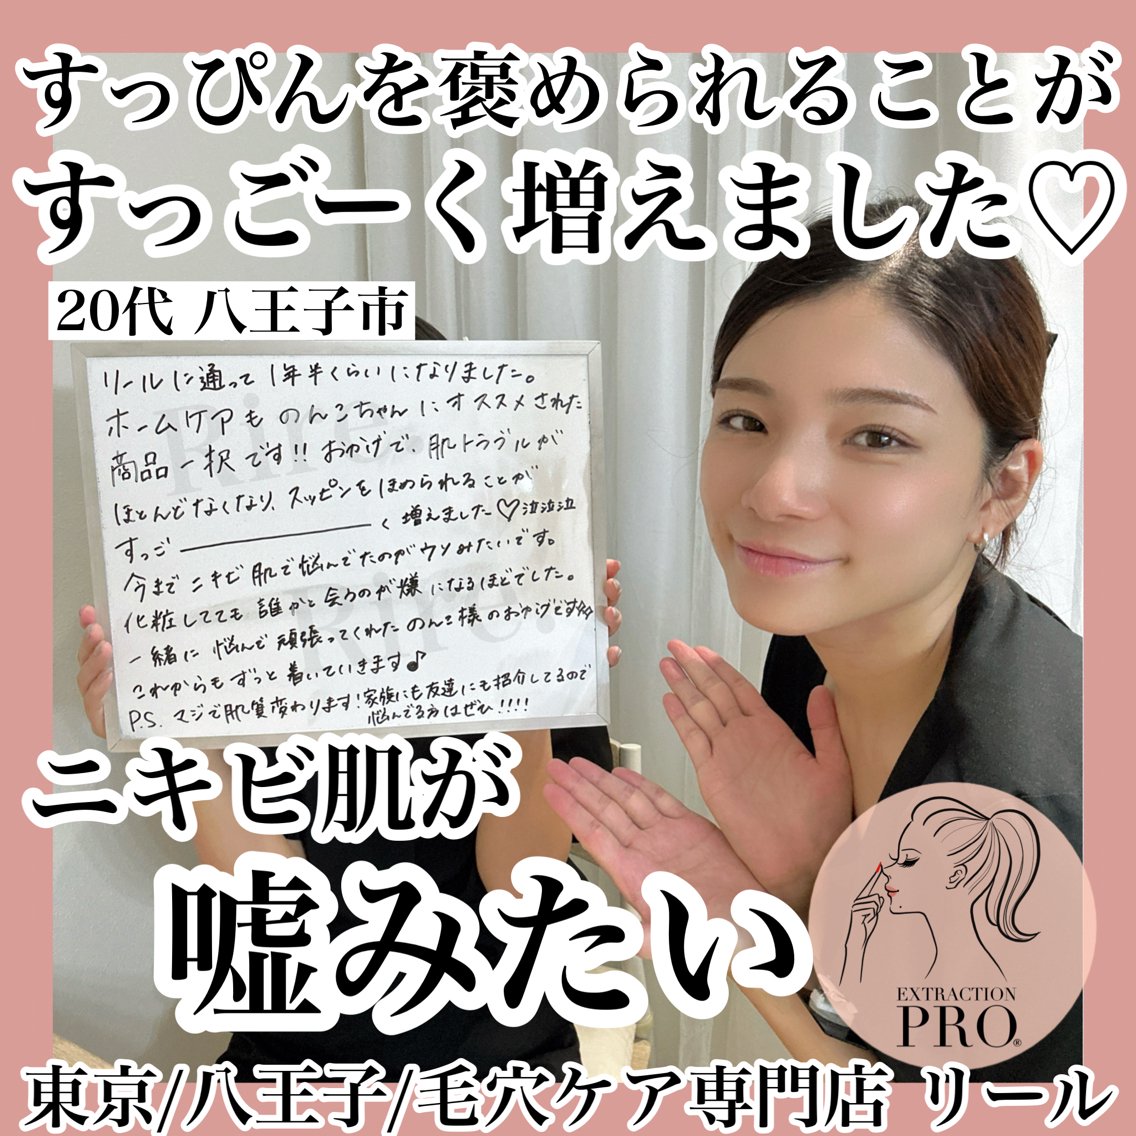 すっぴんを褒められることが
すっごーく増えました♡
20代 八王子市
リールに通って1年半くらいになりました。
ホームケアものんこちゃんにオススメされた
商品一択です!! おかげで、肌トラブルが
ほとんどなくなり、スッピンをほめられることが
すっご――――く増えました♡泣泣泣
今までニキビ肌で悩んでたのがウソみたいです。
化粧してても誰かと会うのが嫌になるほどでした。
一緒に悩んで頑張ってくれたのんこ様のおかげです
これからもずっと着いていきます♪
P.S. マジで肌質変わります!家族にも友達にも紹介してるので
悩んでる方はぜひ!!!!
ニキビ肌が
嘘みたい
EXTRACTION
PRO®
東京/八王子/毛穴ケア専門店 リール